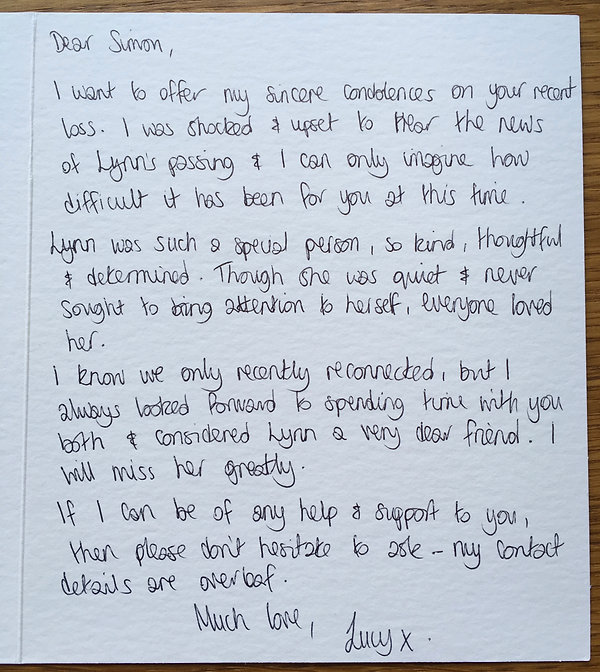 Dear Simon,
I want to offer my sincere condolences on your recent
loss. I was shocked & upset to hear the news
of Lynn's passing & I can only imagine how
difficult it has been for you at this time.
Lynn was such a special person, so kind, thoughtful
& determined. Though she was quiet & never
sought to bring attention to herself, everyone loved
her.
I know we only recently reconnected, but I
always looked forward to spending time with you
both & considered Lynn a very dear friend. I
will miss her greatly.
If I can be of any help & support to you,
then please don't hesitate to ask – my contact
details are overleaf.
Much love,
Lucy x.